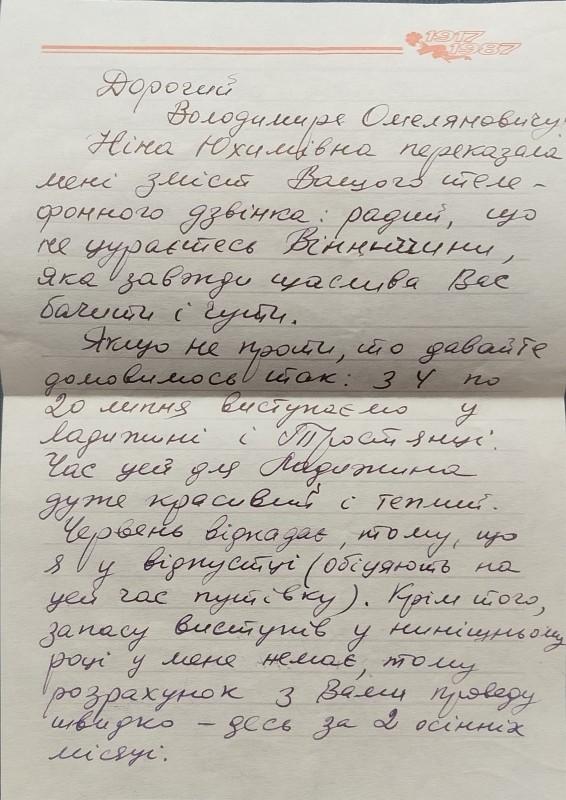 1917
1987
Дорогий
Володимире Омеляновичу!
Ніна Юхимівна переказала
мені зміст Вашого теле-
фонного дзвінка: радий, що
не цураєтесь Вінниччини,
яка завжди щаслива Вас
бачити і чути.
Якщо не проти, то давайте
домовимось так: з 4 по
20 липня виступаємо у
Ладижині і Тростянці.
Час цей для Ладижина
дуже красивий і теплий.
Червень відпадає, тому, що
я у відпустці (обіцяють на
цей час путівку). Крім того,
запасу виступів у нинішньому
році у мене немає, тому
розрахунок з Вами проведу
швидко – десь за 2 осінніх
місяці.